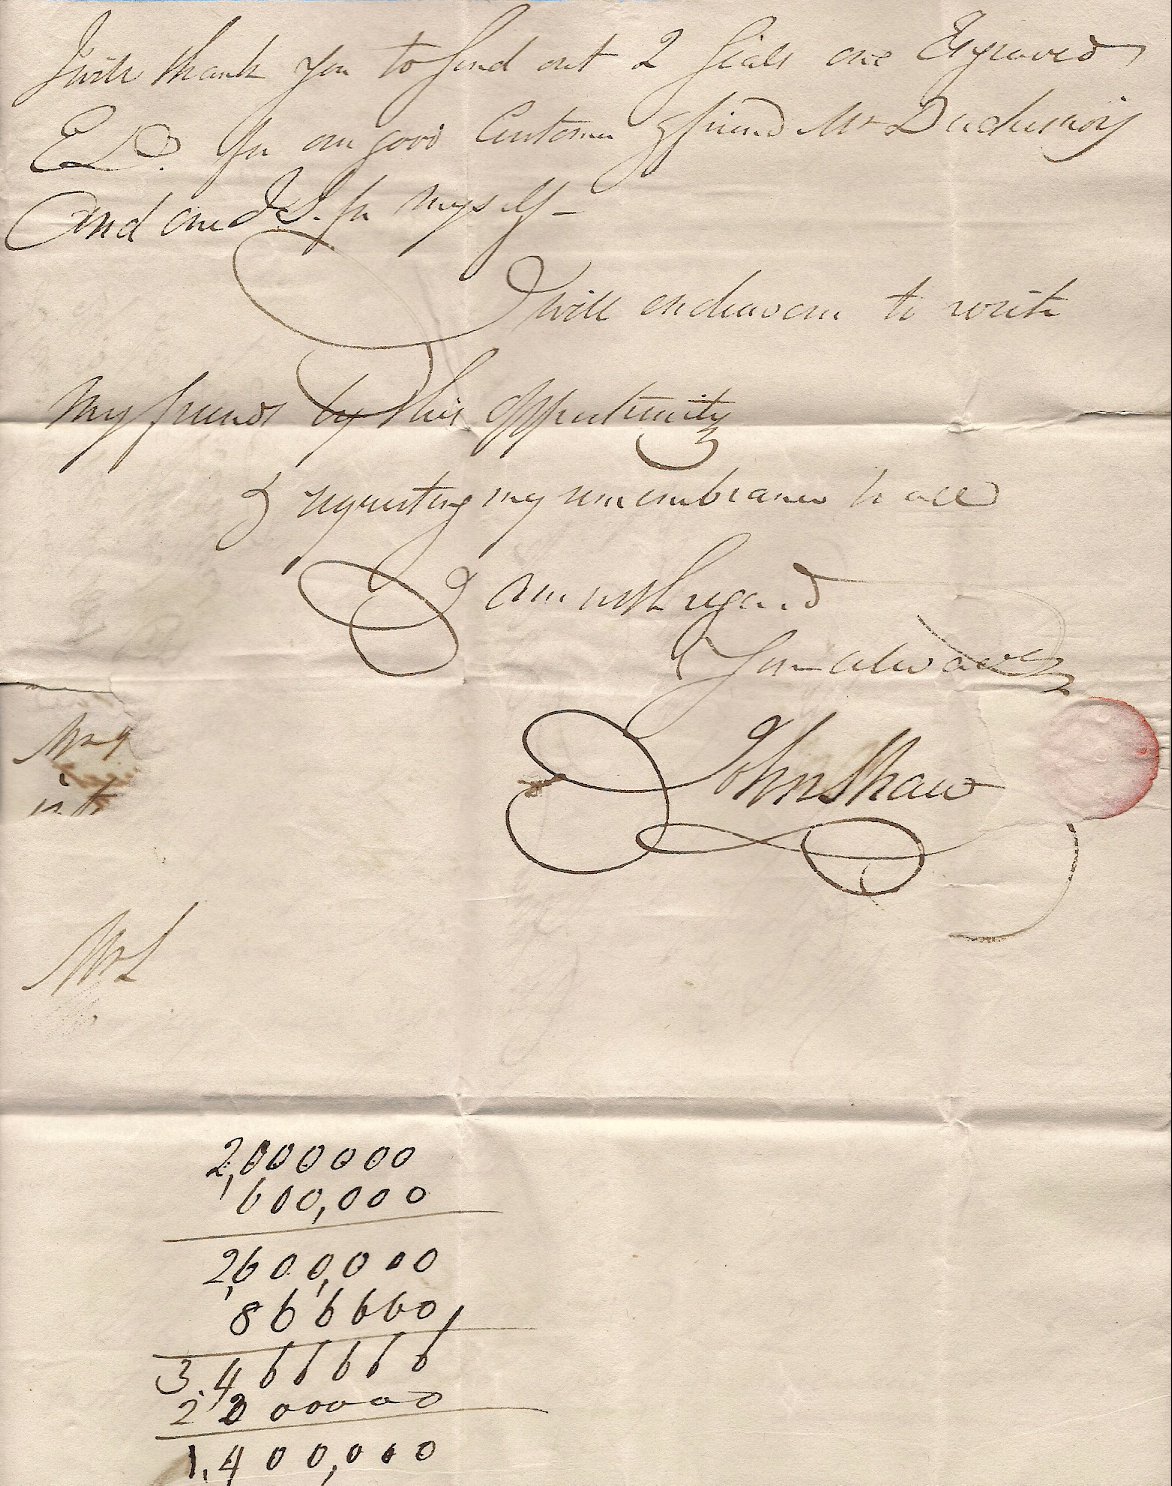 I will thank you to send out 2 Seals one Engraved
E D. for our good Customer & friend Mr
and one J.S. for myself –
I will endeavour to write
my friends by this opportunity
& requesting my remembrance to all
I am with regard
Your always
John Shaw
in the
Mr L
2,000000
600,000
2,600,000
866660
3.466666
2 200000
1,400,000